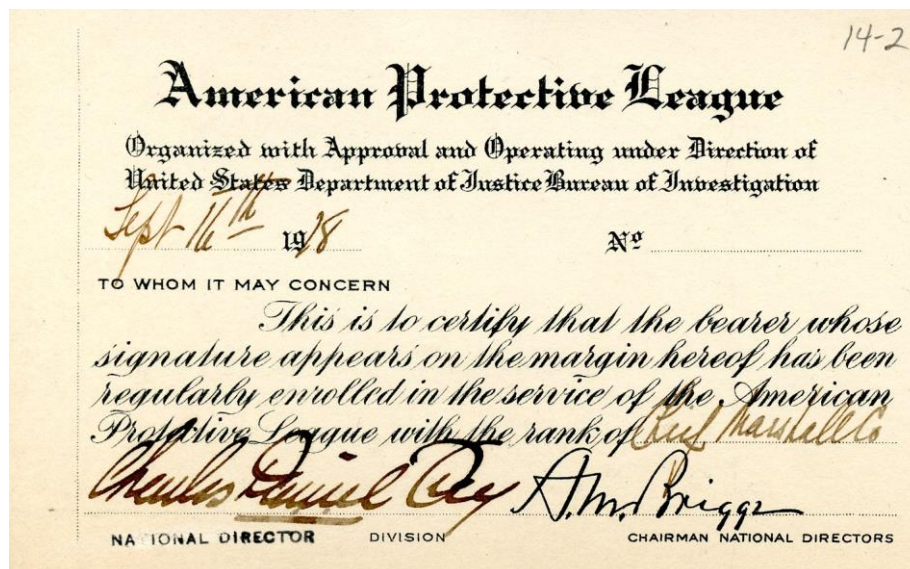 14-2
American Protective League
Organized with Approval and Operating under Direction of
United States Department of Justice Bureau of Investigation
Sept 16th 1918 Nº
TO WHOM IT MAY CONCERN
This is to certify that the bearer whose
signature appears on the margin hereof has been
regularly enrolled in the service of the American
Protective League with the rank of
Charles Daniel Frey A.M. Briggs
NATIONAL DIRECTOR DIVISION CHAIRMAN NATIONAL DIRECTORS